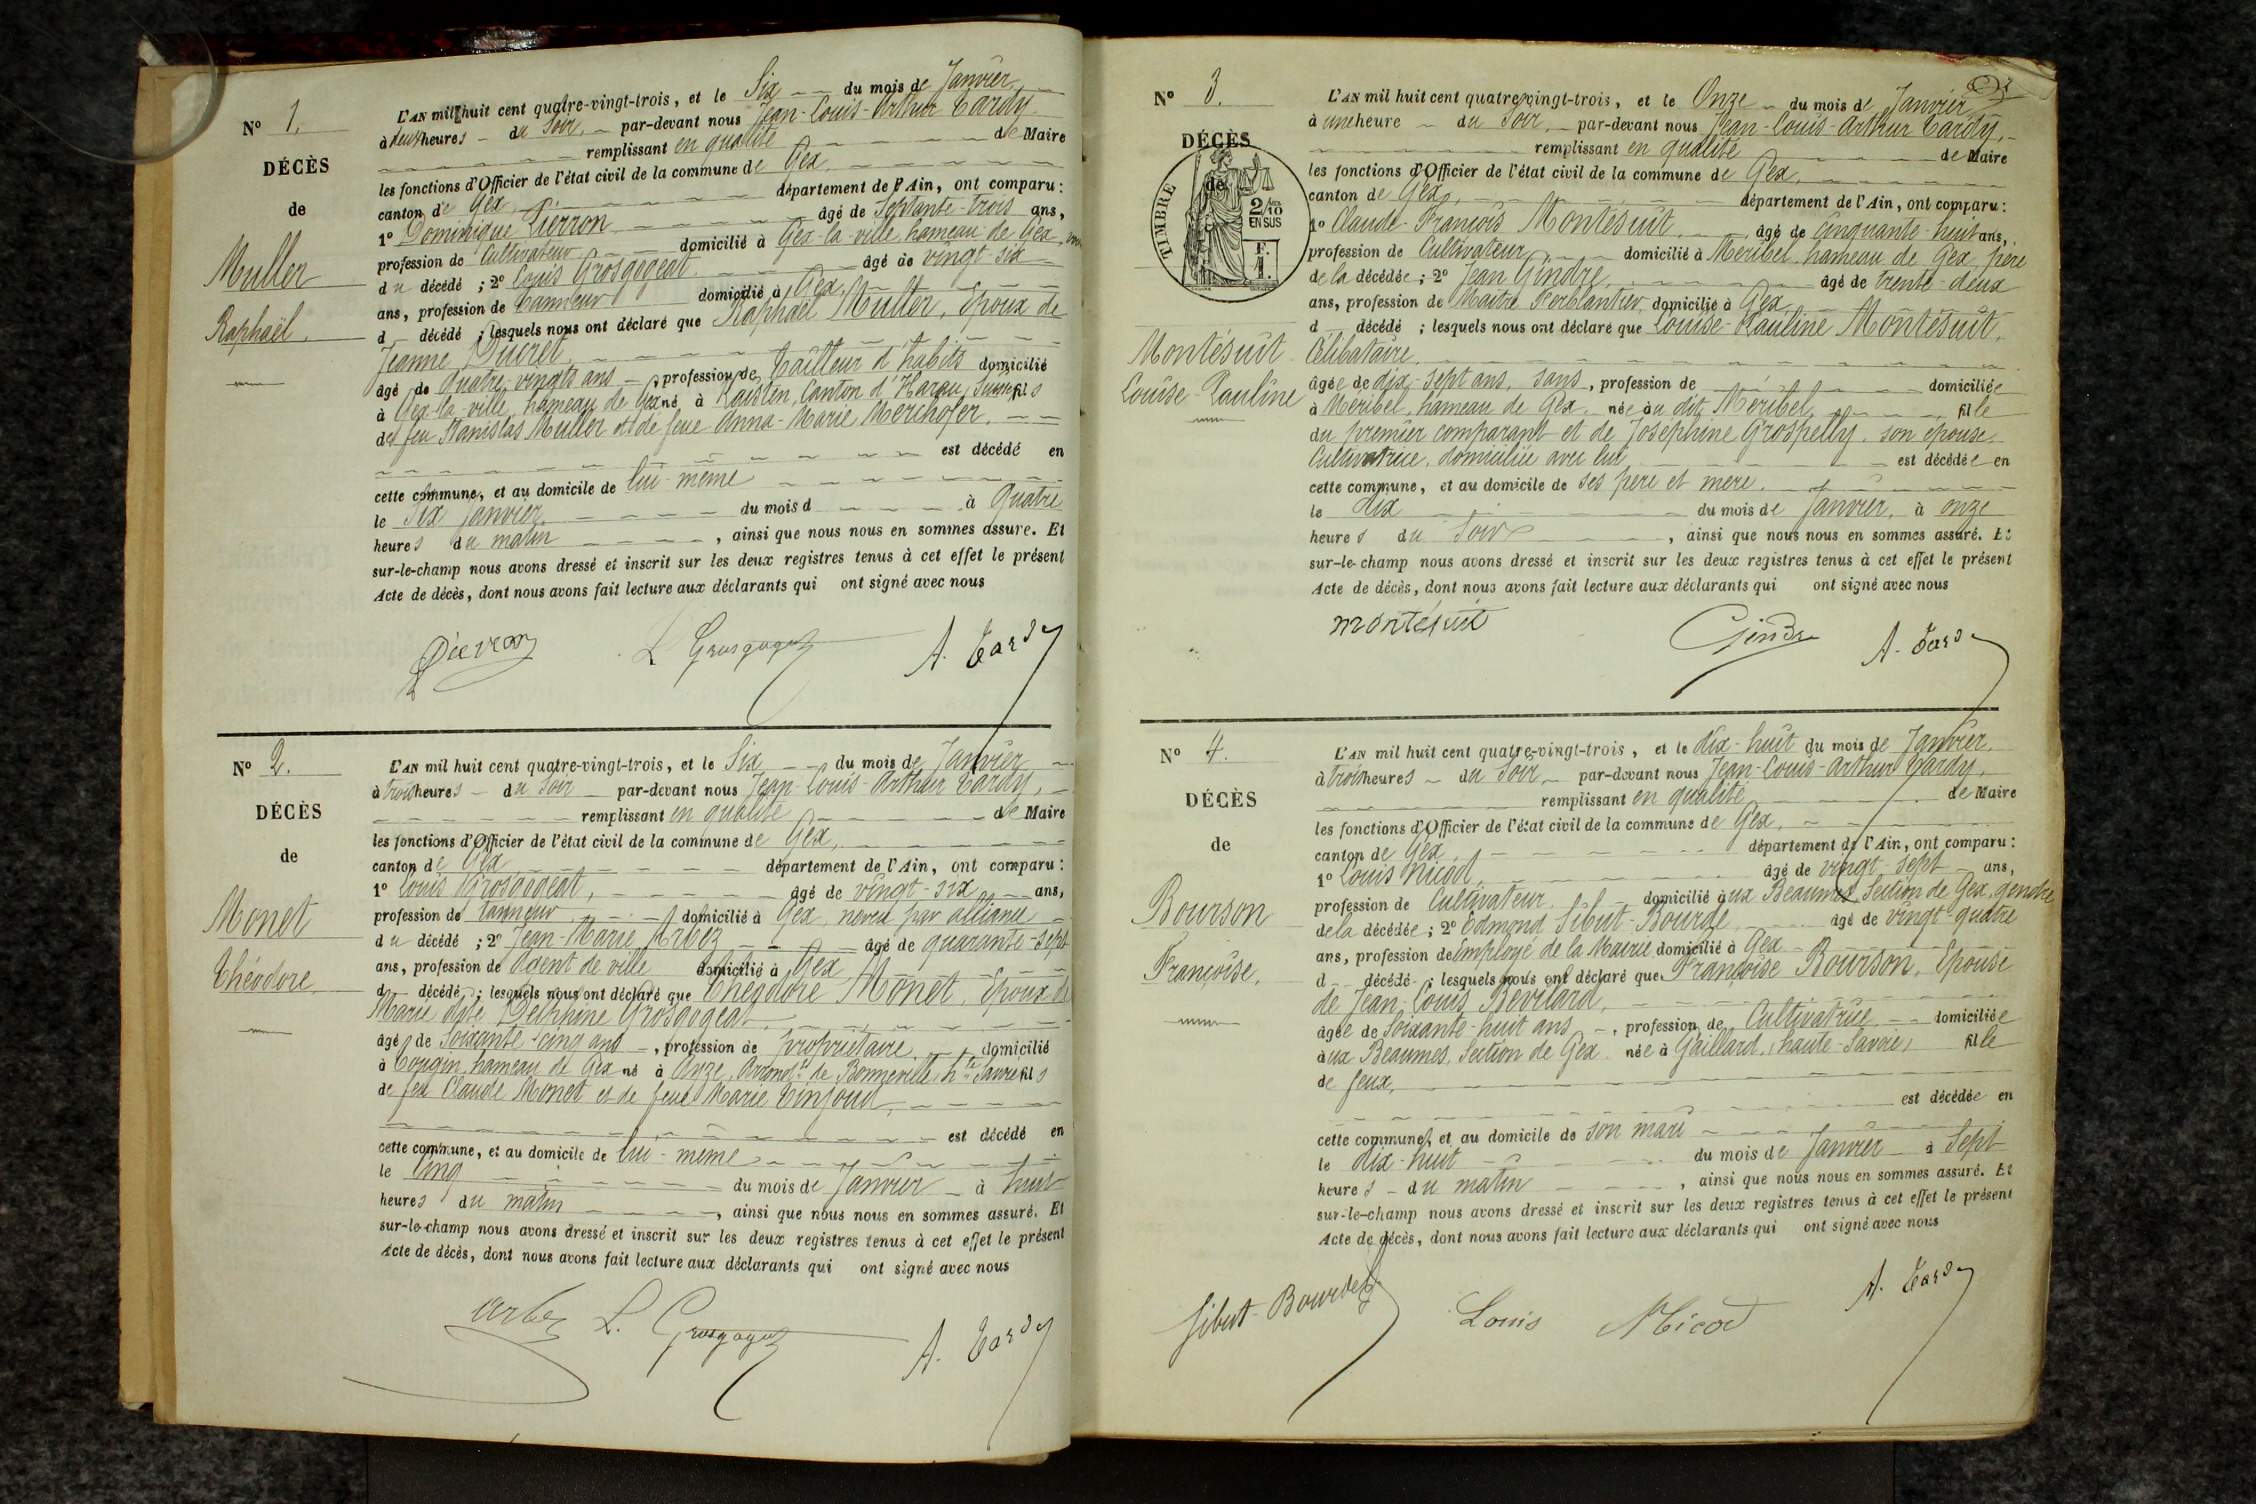 N° 1.
DÉCÈS
de
Muller
Raphaël.
L'AN mil huit cent quatre-vingt-trois, et le Six du mois de Janvier
à deux heures du Soir, par-devant nous Jean-Louis-Arthur Tardy
remplissant en qualité de Maire
les fonctions d'Officier de l'état civil de la commune de Gex
canton de Gex, département de l'Ain, ont comparu:
1° Dominique Pierron âgé de Septante-trois ans,
profession de Cultivateur domicilié à Gex-la-ville, hameau de Gex,
du décédé ; 2° Louis Grosgogeat âgé de vingt-six
ans, profession de tanneur domicilié à Gex
d décédé ; lesquels nous ont déclaré que Raphaël Muller, Epoux de
Jeanne Ducret,
âgé de quatre-vingts ans, profession de tailleur d'habits domicilié
à Gex-la-ville, hameau de Gex né à Kaisten, Canton d' fils
de feu Stanislas Muller et de feue Anna-Marie Merchofer.
est décédé en
cette commune, et au domicile de lui-même
le Six Janvier du mois d à quatre
heures du matin, ainsi que nous nous en sommes assuré. Et
sur-le-champ nous avons dressé et inscrit sur les deux registres tenus à cet effet le présent
Acte de décès, dont nous avons fait lecture aux déclarants qui ont signé avec nous
Pierron L Grosgogeat A. Tardy
N° 2.
DÉCÈS
de
Monet
Théodore.
L'AN mil huit cent quatre-vingt-trois, et le Six du mois de Janvier
à trois heures du Soir par-devant nous Jean-Louis-Arthur Tardy,
remplissant en qualité de Maire
les fonctions d'Officier de l'état civil de la commune de Gex,
canton de Gex département de l'Ain, ont comparu:
1° Louis Grosgogeat, âgé de vingt-six ans,
profession de tanneur domicilié à Gex, neveu par alliance
du décédé ; 2° Jean-Marie Arbez âgé de quarante-sept
ans, profession de Agent de ville domicilié à Gex
d décédé ; lesquels nous ont déclaré que Théodore Monet, Epoux de
Marie dite Delphine Grosgogeat,
âgé de Soixante-cinq ans, profession de propriétaire domicilié
à Tougin, hameau de Gex né à Onze, Arrondt de Bonneville, hte Savoie fils
de feu Claude Monet et de feue Marie Tinjoud,
est décédé en
cette commune, et au domicile de lui-même
le Cinq du mois de Janvier à huit
heures du matin, ainsi que nous nous en sommes assuré. Et
sur-le-champ nous avons dressé et inscrit sur les deux registres tenus à cet effet le présent
Acte de décès, dont nous avons fait lecture aux déclarants qui ont signé avec nous
Arbez L. Grosgogeat A. Tardy
N° 3.
DÉCÈS
de
TIMBRE
2/10
EN SUS
F.
1.
Montésuit
Louise-Pauline
L'AN mil huit cent quatre-vingt-trois, et le Onze du mois de Janvier
à une heure du Soir, par-devant nous Jean-Louis-Arthur Tardy,
remplissant en qualité de Maire
les fonctions d'Officier de l'état civil de la commune de Gex,
canton de Gex, département de l'Ain, ont comparu:
1° Claude-François Montésuit, âgé de cinquante-huit ans,
profession de Cultivateur domicilié à Meribel, hameau de Gex, père
de la décédée ; 2° Jean Gindre, âgé de trente-deux
ans, profession de Maître Ferblantier, domicilié à Gex
d décédé ; lesquels nous ont déclaré que Louise-Pauline Montésuit,
Célibataire.
âgée de dix-sept ans, sans, profession de domiciliée
à Méribel, hameau de Gex, née au dit Méribel, fille
du premier comparant et de Joséphine Grospelly, son épouse,
Cultivatrice, domiciliée avec lui est décédée en
cette commune, et au domicile de ses père et mère.
le dix du mois de Janvier, à onze
heures du Soir, ainsi que nous nous en sommes assuré. Et
sur-le-champ nous avons dressé et inscrit sur les deux registres tenus à cet effet le présent
Acte de décès, dont nous avons fait lecture aux déclarants qui ont signé avec nous
montésuit Gindre A. Tardy
N° 4.
DÉCÈS
de
Bourson
Françoise.
L'AN mil huit cent quatre-vingt-trois, et le dix-huit du mois de Janvier.
à trois heures du Soir, par-devant nous Jean-Louis-Arthur Tardy,
remplissant en qualité de Maire
les fonctions d'Officier de l'état civil de la commune de Gex,
canton de Gex, département de l'Ain, ont comparu:
1° Louis Nicod, âgé de vingt-sept ans,
profession de Cultivateur, domicilié aux Beaumes, Section de Gex, gendre
de la décédée ; 2° Edmond Sibut-Bourde, âgé de vingt-quatre
ans, profession de Employé de la Mairie domicilié à Gex
d décédé ; lesquels nous ont déclaré que Françoise Bourson, Epouse
de Jean-Louis Bevilard,
âgée de Soixante-huit ans, profession de Cultivatrice domiciliée
aux Beaumes, Section de Gex née à Gaillard, (haute-Savoie) fille
de feux,
est décédée en
cette commune, et au domicile de son mari
le dix-huit du mois de Janvier à Sept
heures du matin, ainsi que nous nous en sommes assuré. Et
sur-le-champ nous avons dressé et inscrit sur les deux registres tenus à cet effet le présent
Acte de décès, dont nous avons fait lecture aux déclarants qui ont signé avec nous
Sibut-Bourde Louis Nicod A. Tardy